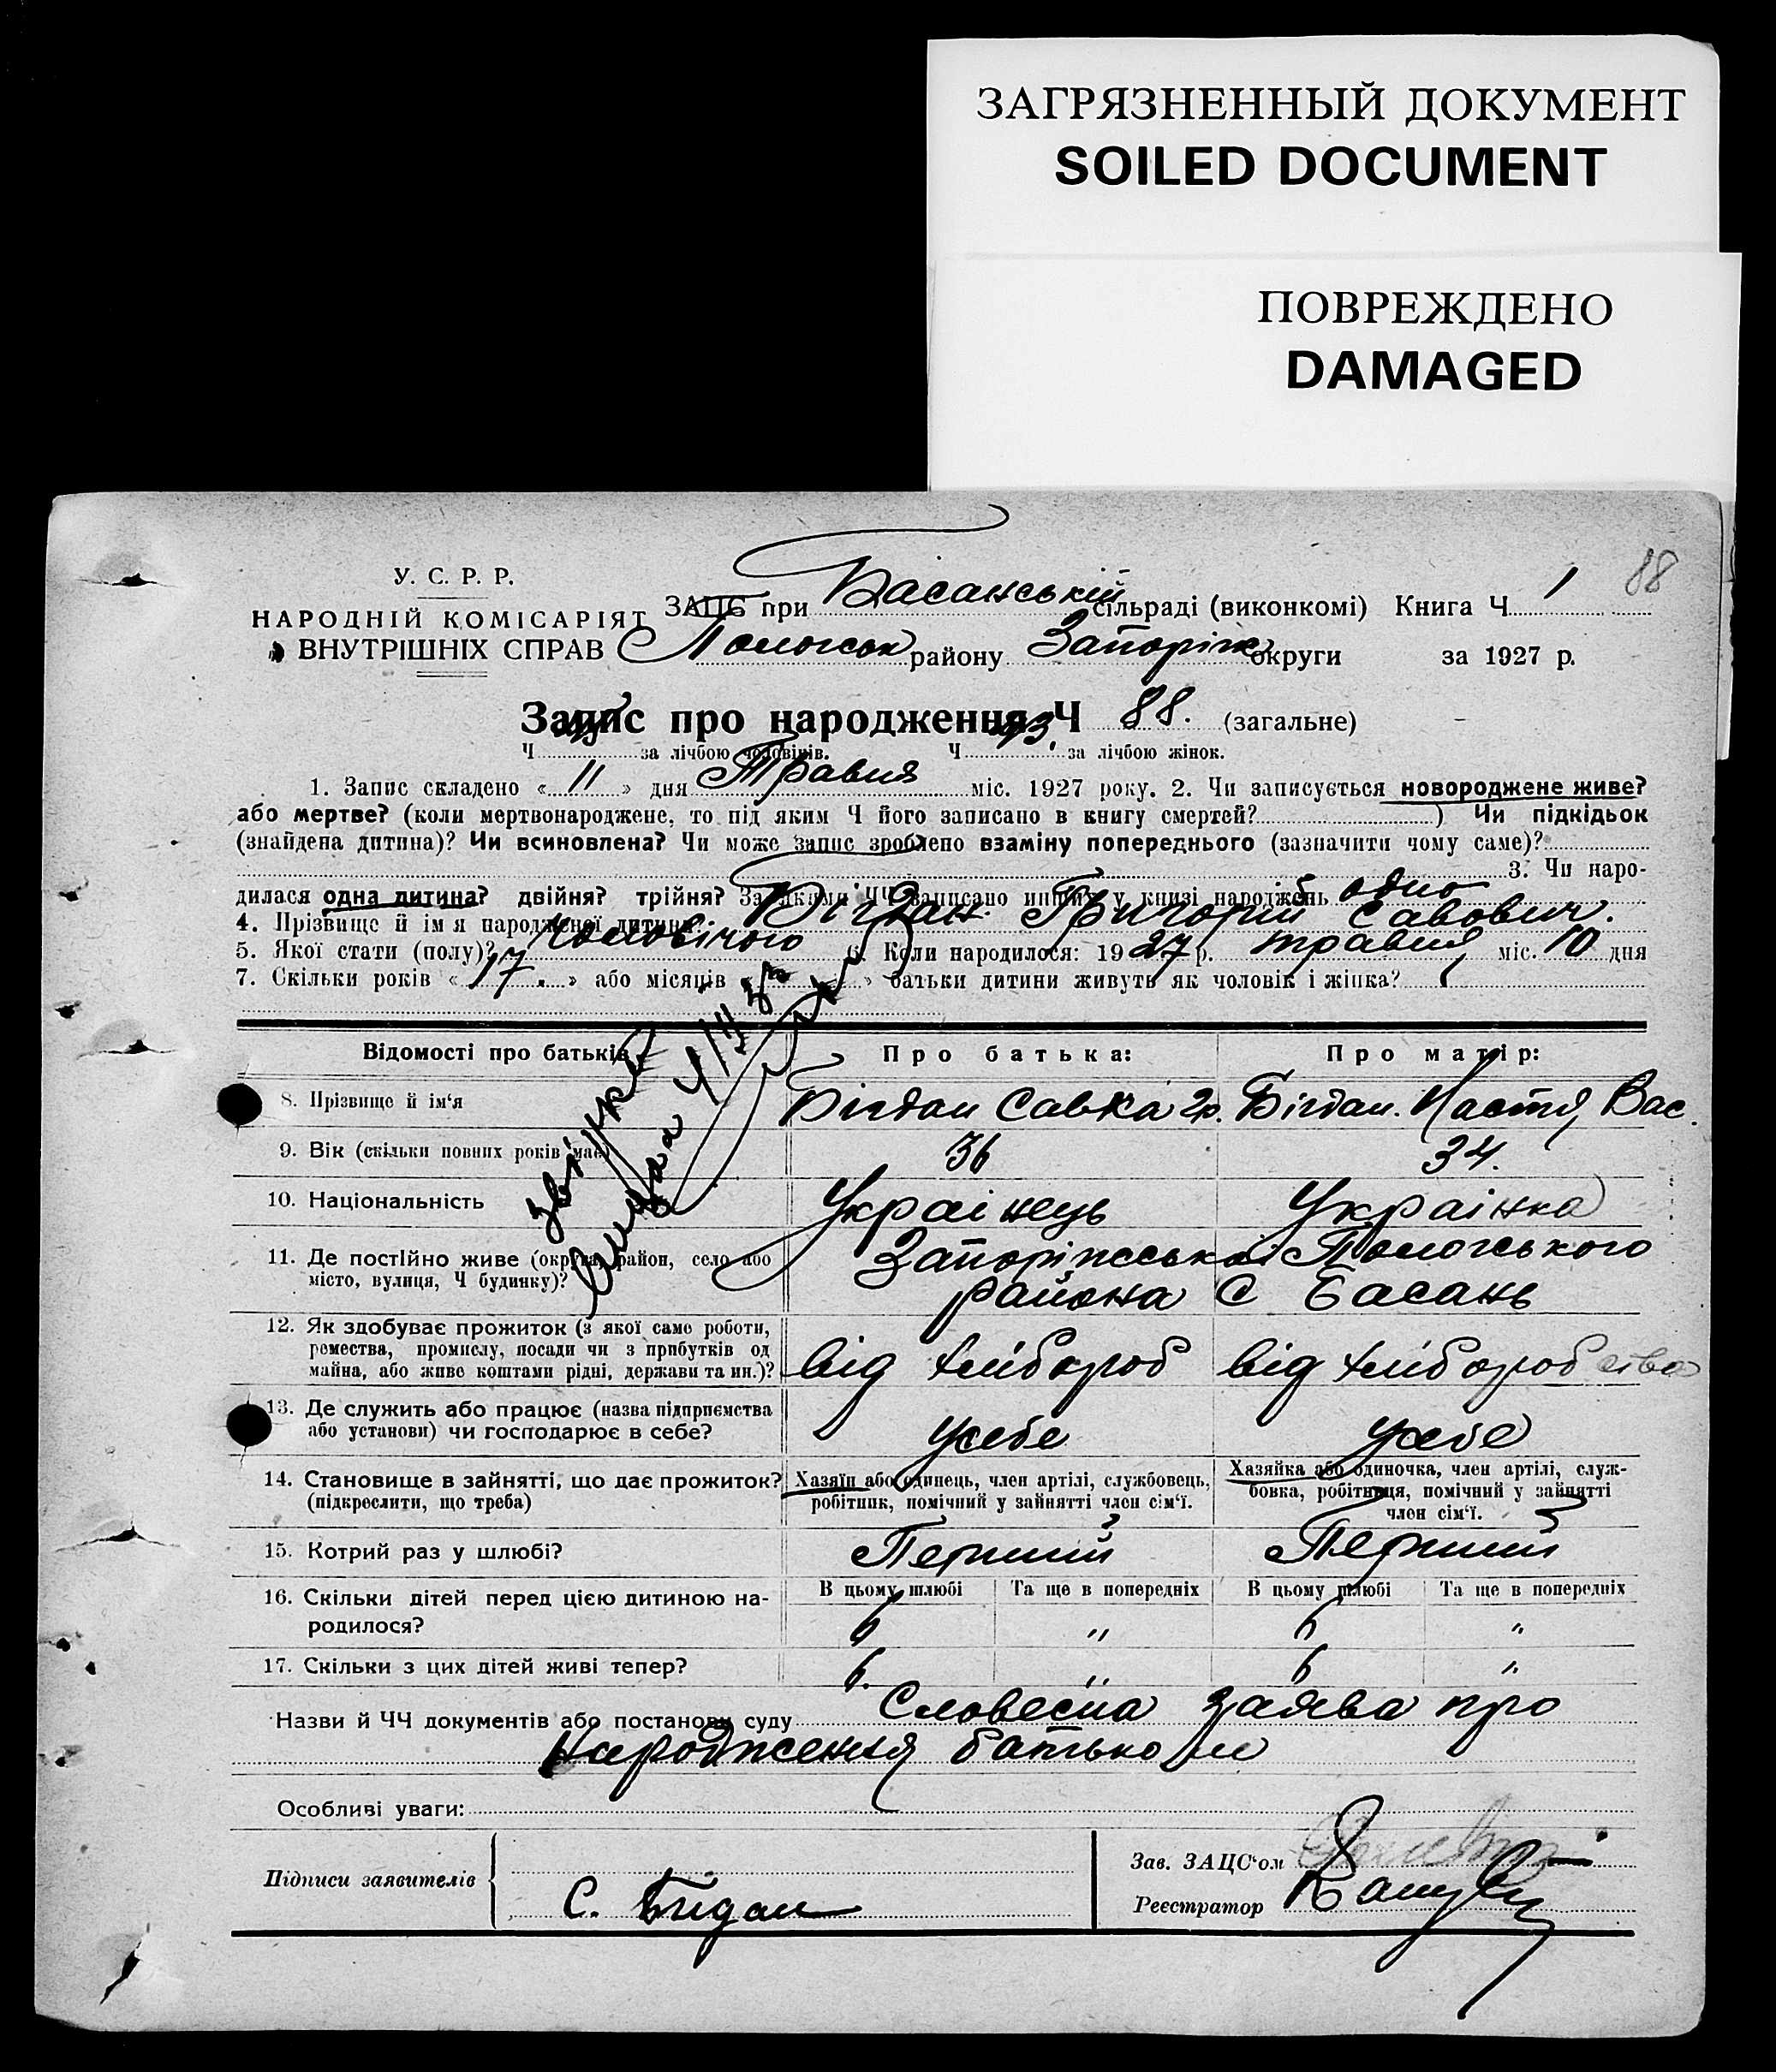 ЗАГРЯЗНЕННЫЙ ДОКУМЕНТ
SOILED DOCUMENT
ПОВРЕЖДЕНО
DAMAGED
88
У. С. Р. Р.
НАРОДНІЙ КОМІСАРІЯТ
ВНУТРІШНІХ СПРАВ
ЗАПС при Басанській сільраді (виконкомі) Книга Ч 1
Пологськ району Запоріж округи за 1927 р.
Запис про народження Ч 88. (загальне)
Ч за лічбою чоловіків. Ч за лічбою жінок.
1. Запис складено « 11 » дня Травня міс. 1927 року. 2. Чи записується новороджене живе?
або мертве? (коли мертвонароджене, то під яким Ч його записано в книгу смертей? ) Чи підкідьок
(знайдена дитина)? Чи всиновлена? Чи може запис зроблено взаміну попереднього (зазначити чому саме)?
3. Чи наро-
дилася одна дитина? двійня? трійня? За якими ЧЧ записано инших у книзі народжень одно
4. Прізвище й ім'я народженої дитини: Бігдан Григорій Савович.
5. Якої стати (полу)? Чоловічого 6. Коли народилося: 1927 р. травня міс. 10 дня
7. Скільки років « 17 . » або місяців « » батьки дитини живуть як чоловік і жінка?
Відомості про батьків Про батька: Про матір:
8. Прізвище й ім'я Бігдан Савка Гр. Бігдан. Настя Вас.
9. Вік (скільки повних років має) 36 34.
10. Національність Українець Українка
11. Де постійно живе (округа, район, село або Запоріжська Пологського
місто, вулиця, Ч будинку)? района С Басань
12. Як здобуває прожиток (з якої саме роботи,
ремества, промислу, посади чи з прибутків од
майна, або живе коштами рідні, держави та ин.)? від хлібороб від хліборобства
13. Де служить або працює (назва підприємства
або установи) чи господарює в себе? усебе усебе
14. Становище в зайнятті, що дає прожиток? Хазяїн або одинець, член артілі, службовець, Хазяйка або одиночка, член артілі, служ-
(підкреслити, що треба) робітник, помічний у зайнятті член сім'ї. бовка, робітниця, помічний у зайнятті
член сім'ї.
15. Котрий раз у шлюбі? Перший Перший
16. Скільки дітей перед цією дитиною на- В цьому шлюбі Та ще в попередніх В цьому шлюбі Та ще в попередніх
родилося? 6 " 6 "
17. Скільки з цих дітей живі тепер? 6. " 6 "
Назви й ЧЧ документів або постанови суду Словесна заява про
Народження батьком
Особливі уваги:
Підписи заявителів С. Бігдан
Зав. ЗАЦС'ом
Реєстратор